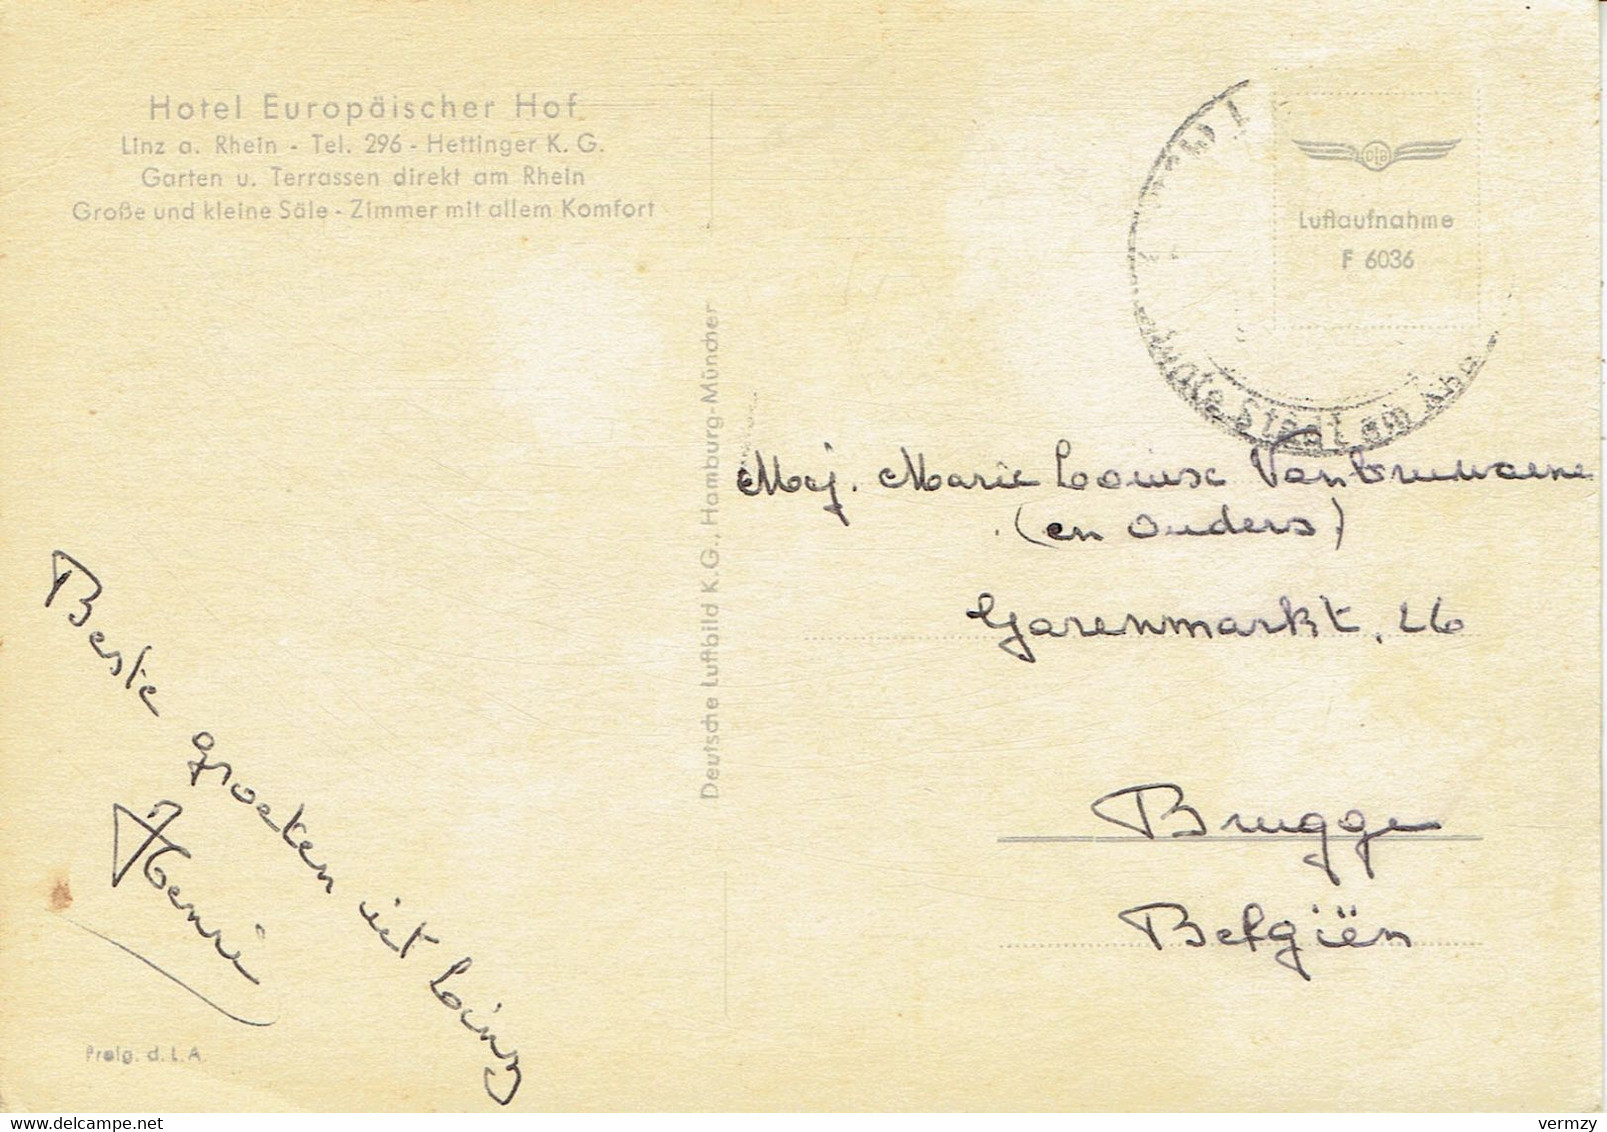 Hotel Europäischer Hof
Linz a. Rhein - Tel. 296 - Hettinger K. G.
Garten u. Terrassen direkt am Rhein
Große und kleine Säle - Zimmer mit allem Komfort
Beste groeten uit Linz
Henri
Freig. d. L. A.
Deutsche Luftbild K.G., Hamburg-München
DLB
Luftaufnahme
F 6036
Bunte Stadt am Rhein
Mej. Marie Louise
(en ouders)
Garenmarkt, 26
Brugge
Belgïën
delcampe.net
vermzy